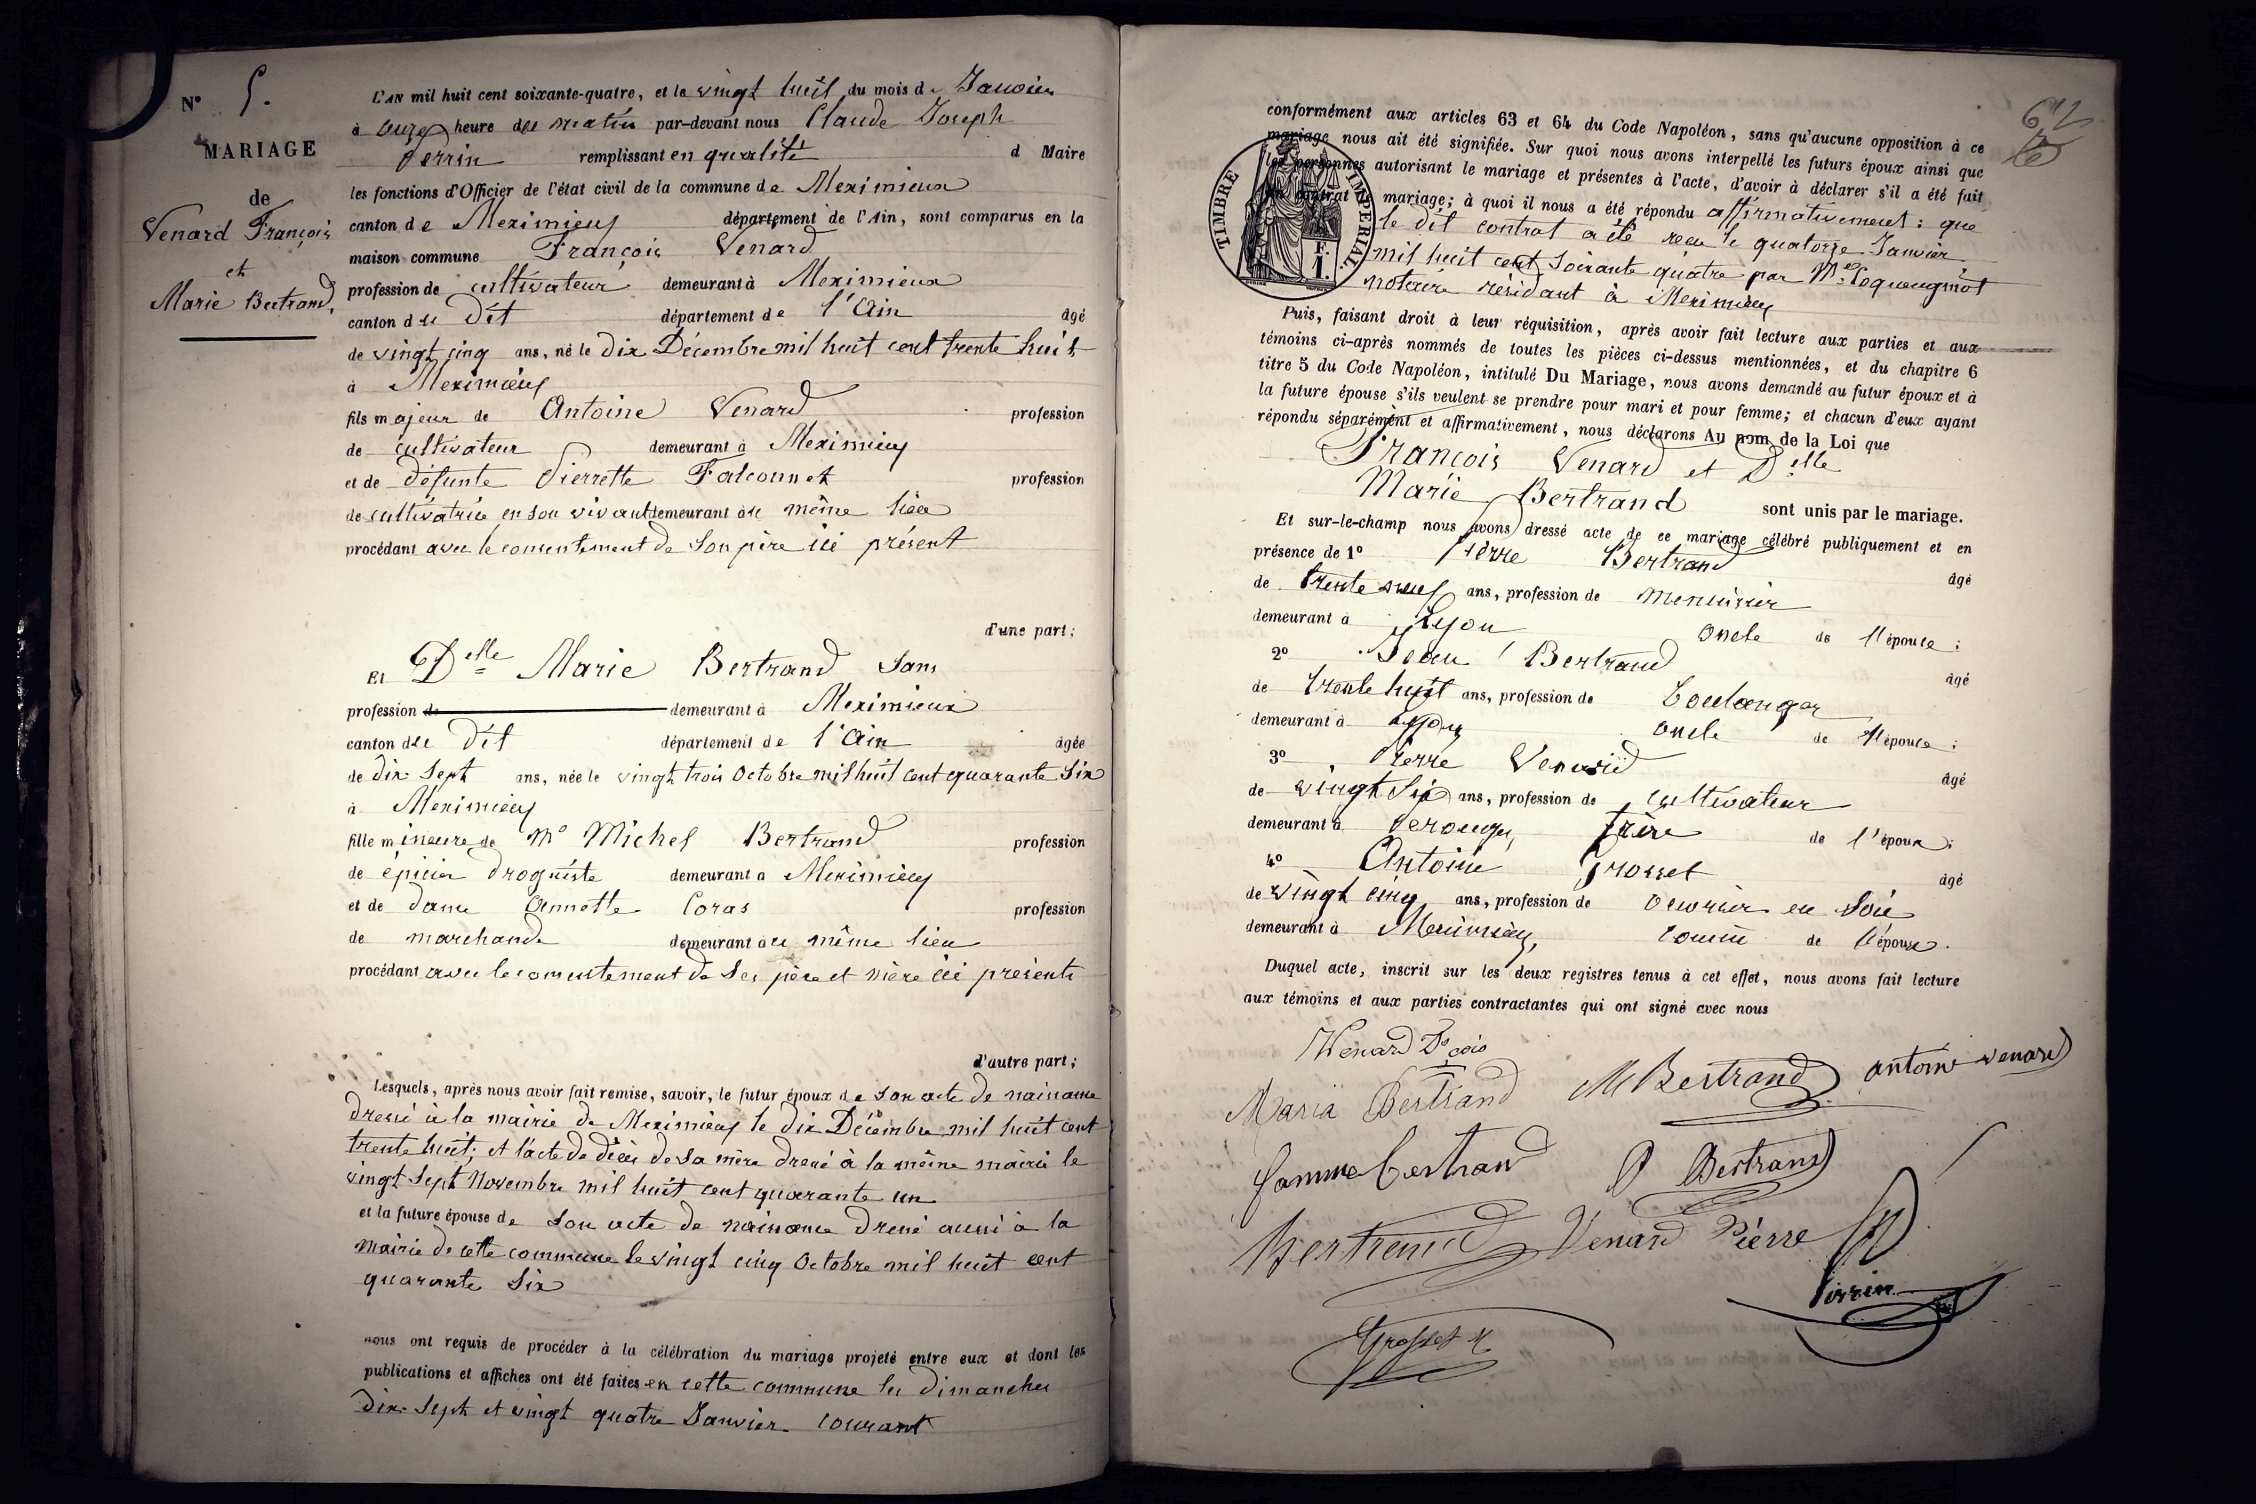 N° 5.
MARIAGE
de
Venard François
et
Marie Bertrand,
L'AN mil huit cent soixante-quatre, et le vingt huit du mois de Janvier
à onze heure du matin par-devant nous Claude Joseph
Perrin remplissant en qualité d Maire
les fonctions d'Officier de l'état civil de la commune de Meximieux
canton de Meximieux département de l'Ain, sont comparus en la
maison commune François Venard
profession de cultivateur demeurant à Meximieux
canton du Dit département de l'Ain âgé
de vingt cinq ans, né le dix Décembre mil huit cent trente huit
à Meximieux
fils majeur de Antoine Venard profession
de cultivateur demeurant à Meximieux
et de défunte Pierrette Falconnet profession
de cultivatrice en son vivant demeurant au même lieu
procédant avec le consentement de son père ici présent
d'une part;
Et Delle Marie Bertrand Sans
profession de demeurant à Meximieux
canton du Dit département de l'Ain âgée
de dix Sept ans, née le vingt trois Octobre mil huit cent quarante Six
à Meximieux
fille mineure de Mr Michel Bertrand profession
de épicier Droguiste demeurant à Meximieux
et de Dame Annette Coras profession
de marchande demeurant au même lieu
procédant avec le consentement de Ses père et mère ici présents
d'autre part;
Lesquels, après nous avoir fait remise, savoir, le futur époux de Son acte de naissance
Dressé à la mairie de Meximieux le dix Décembre mil huit cent
trente huit; et l'acte de décès de Sa mère Dressé à la même mairie le
vingt Sept Novembre mil huit cent quarante un
et la future épouse de Son acte de naissance Dressé aussi à la
Mairie de cette commune le vingt cinq Octobre mil huit cent
quarante Six
nous ont requis de procéder à la célébration du mariage projeté entre eux et dont les
publications et affiches ont été faites en cette commune les Dimanches
Dix Sept et vingt quatre Janvier courant
conformément aux articles 63 et 64 du Code Napoléon, sans qu'aucune opposition à ce
mariage nous ait été signifiée. Sur quoi nous avons interpellé les futurs époux ainsi que
les personnes autorisant le mariage et présentes à l'acte, d'avoir à déclarer s'il a été fait
un contrat de mariage; à quoi il nous a été répondu affirmativement: que
le dit contrat a été reçu le quatorze Janvier
mil huit cent Soixante quatre par Me
notaire résidant à Meximieux
TIMBRE IMPERIAL.
F.
1.
Puis, faisant droit à leur réquisition, après avoir fait lecture aux parties et aux
témoins ci-après nommés de toutes les pièces ci-dessus mentionnées, et du chapitre 6
titre 5 du Code Napoléon, intitulé Du Mariage, nous avons demandé au futur époux et à
la future épouse s'ils veulent se prendre pour mari et pour femme; et chacun d'eux ayant
répondu séparément et affirmativement, nous déclarons Au nom de la Loi que
François Venard et Delle
Marie Bertrand sont unis par le mariage.
Et sur-le-champ nous avons dressé acte de ce mariage célébré publiquement et en
présence de 1° Pierre Bertrand âgé
de trente neuf ans, profession de menuisier
demeurant à Lyon oncle de l'épouse;
2° Jean Bertrand âgé
de trente huit ans, profession de boulanger
demeurant à Lyon oncle de l'épouse;
3° Pierre Venard âgé
de vingt Six ans, profession de cultivateur
demeurant à Perouges, frère de l'époux;
4° Antoine Grosset âgé
de vingt cinq ans, profession de Ouvrier en Soie
demeurant à Meximieux, cousin de l'épouse.
Duquel acte, inscrit sur les deux registres tenus à cet effet, nous avons fait lecture
aux témoins et aux parties contractantes qui ont signé avec nous
Venard Fçois
Maria Bertrand M Bertrand antoine venard
famme bertrand P Bertrand
Bertrand Venard Pierre
Perrin
Grosset